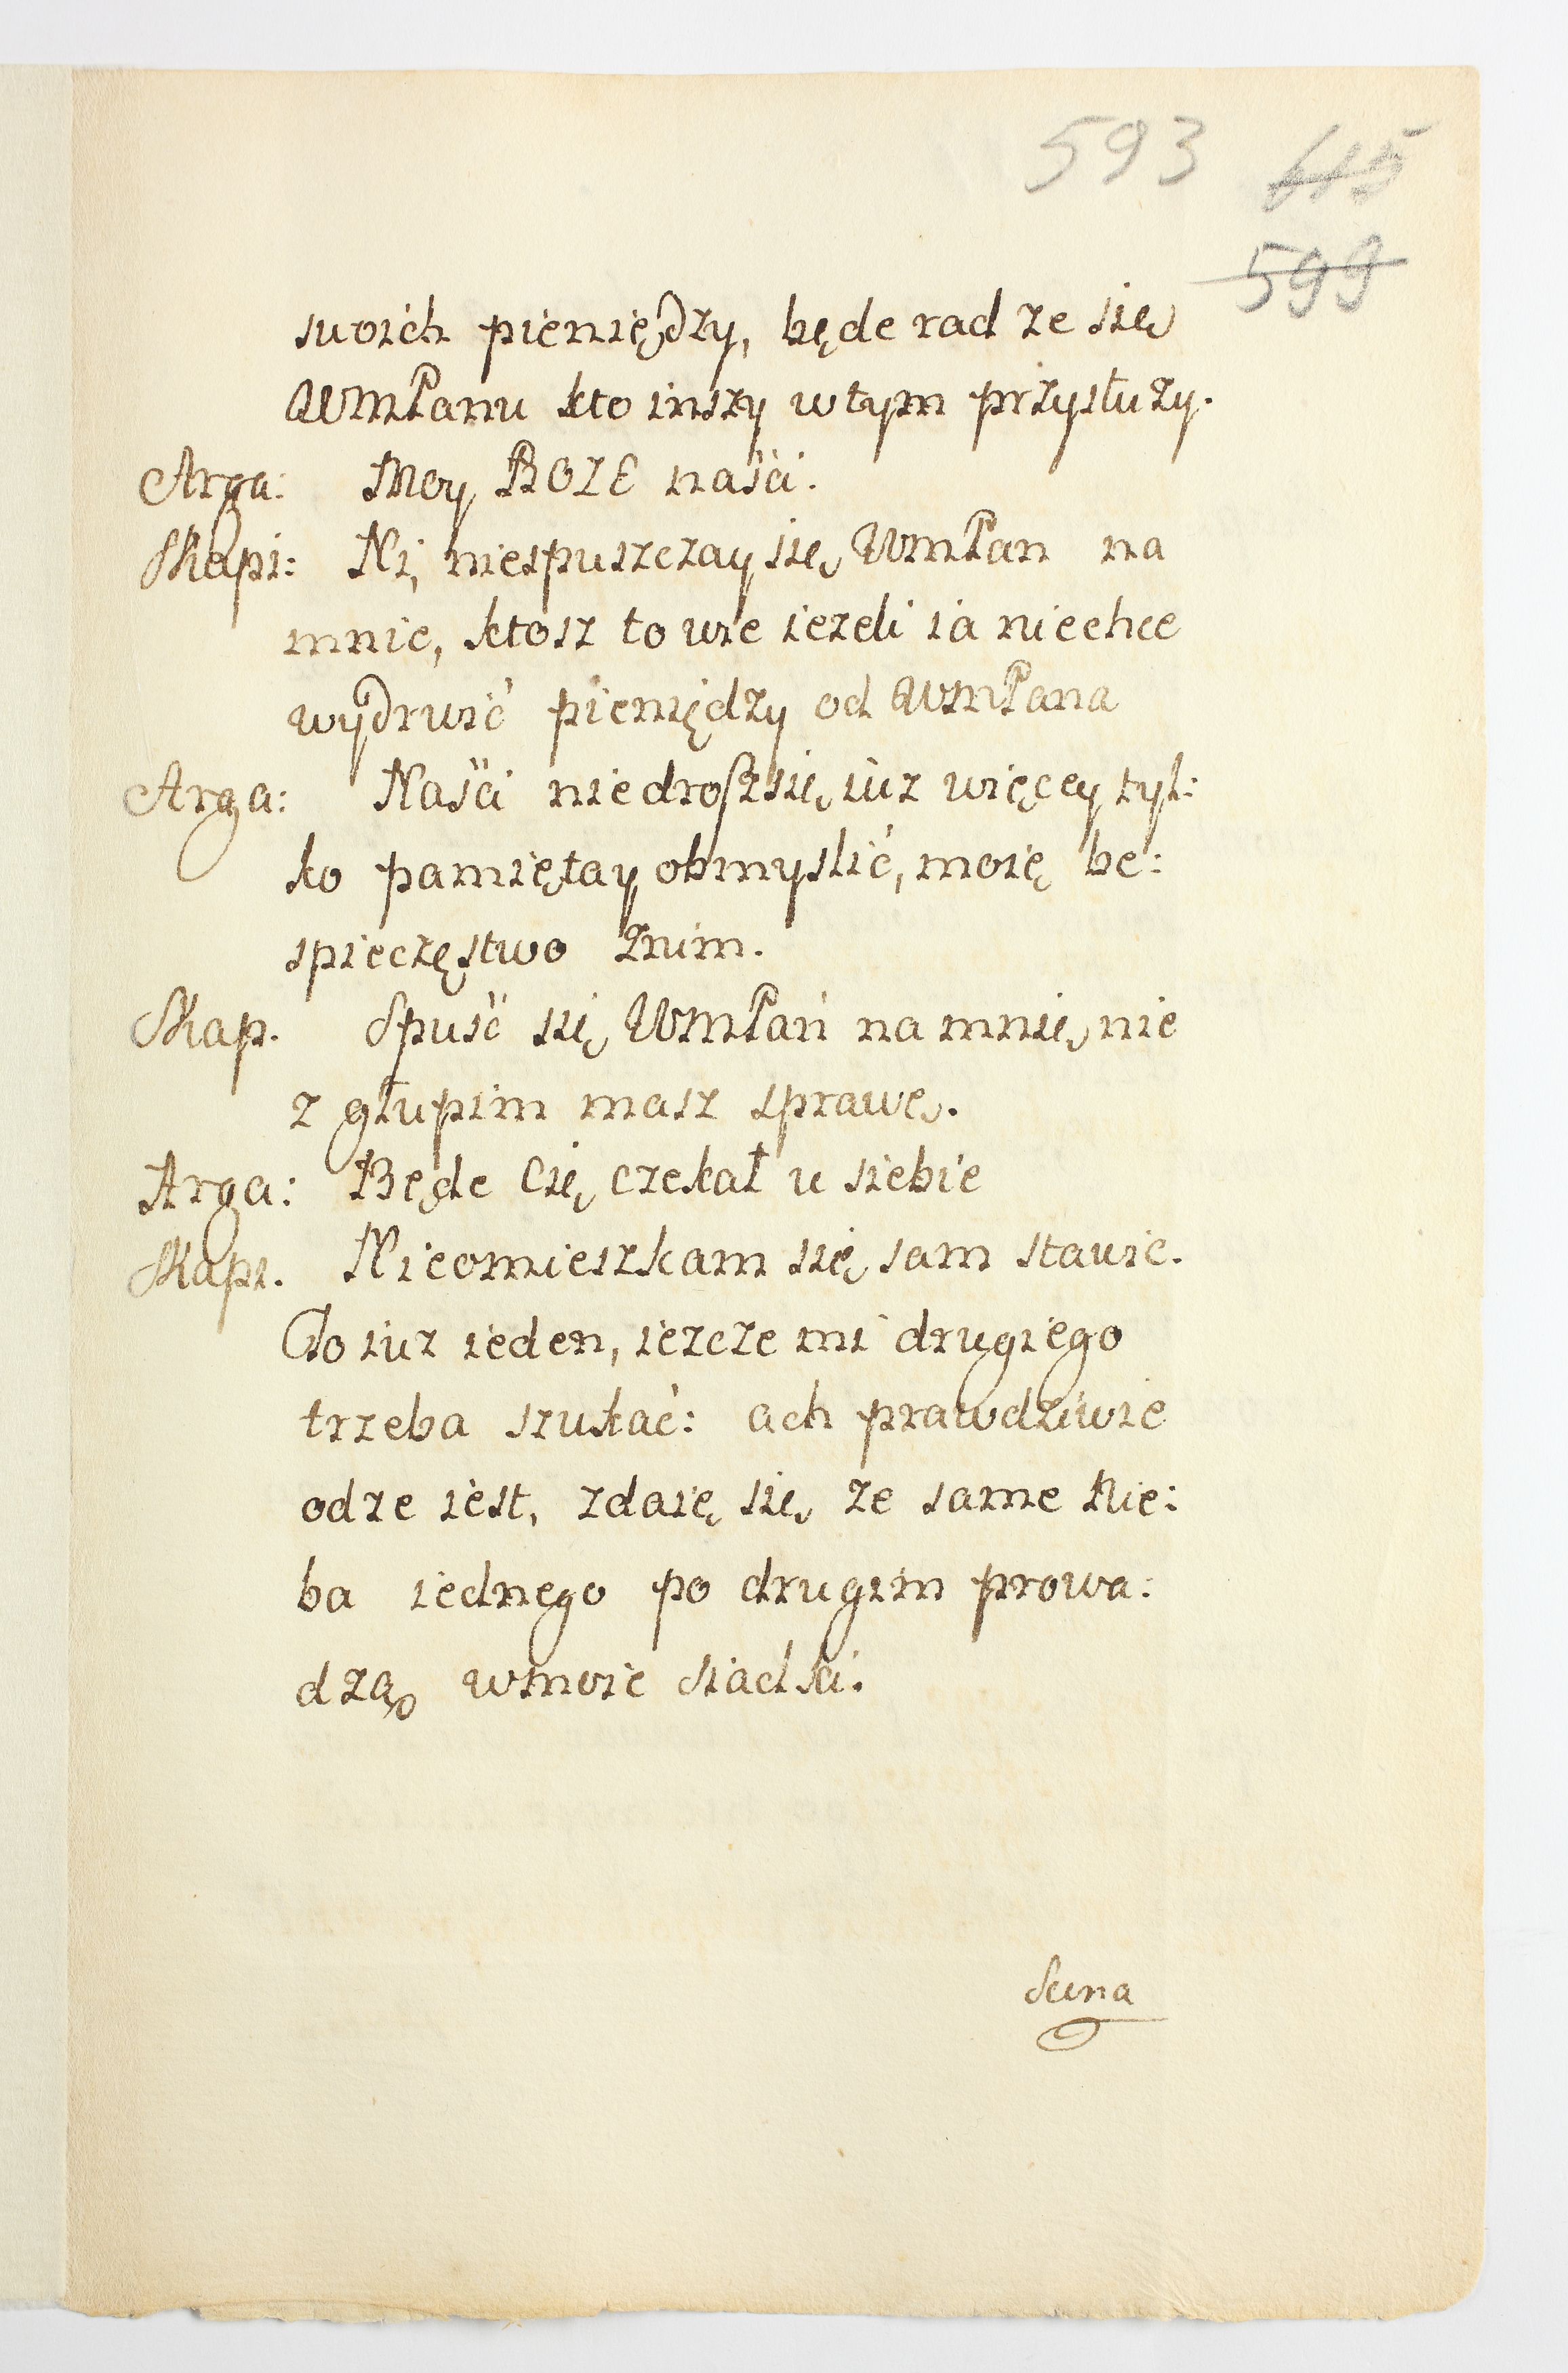 593 615
599
swoich pieniędzy, będe rad ze się
WMPanu kto inszy w tym przysłuzy.
Arga: Moy BOZE naści.
Skapi: Ni, niespuszczay się WMPan na
mnie, ktosz to wie iezeli ia niechce
wydrwić pieniędzy od WMPana
Arga: Naści niedroszsię iuz więcey tyl:
ko pamiętay obmyslić, moię be:
spieczęstwo znim.
Skap. Spuść się WMPan na mnie, nie
z głupim masz sprawę.
Arga: Będe Cię czekał u siebie
Skapi. Nieomieszkam się sam stawic.
To iuz ieden, iezcze mi drugiego
trzeba szukać: ach prawdziwie
odze iest, zdaię się ze same Nie:
ba iednego po drugim prowa:
dzą wmoie siadki.
Scena